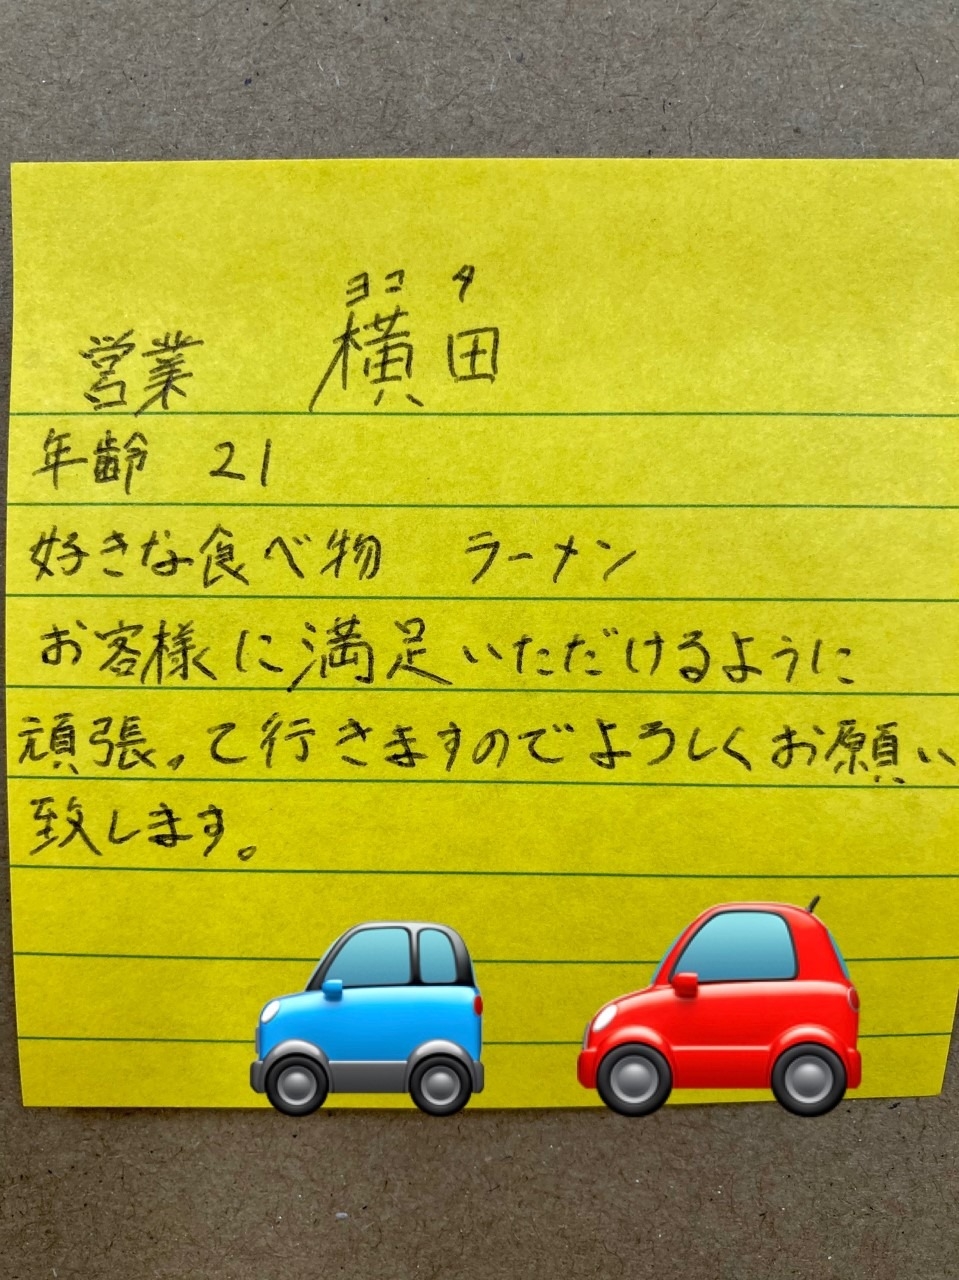 ヨコ タ
営業 横田
年齢 21
好きな食べ物 ラーメン
お客様に満足いただけるように
頑張って行きますのでよろしくお願い
致します。